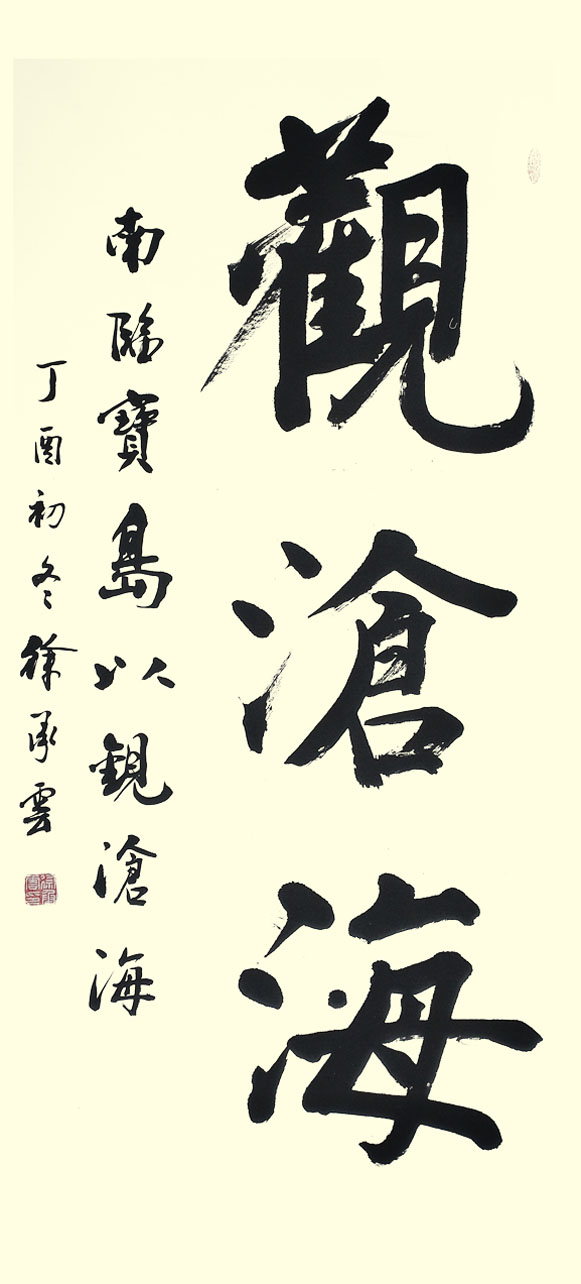 觀滄海
南臨寶島以觀滄海
丁酉初冬徐承雲